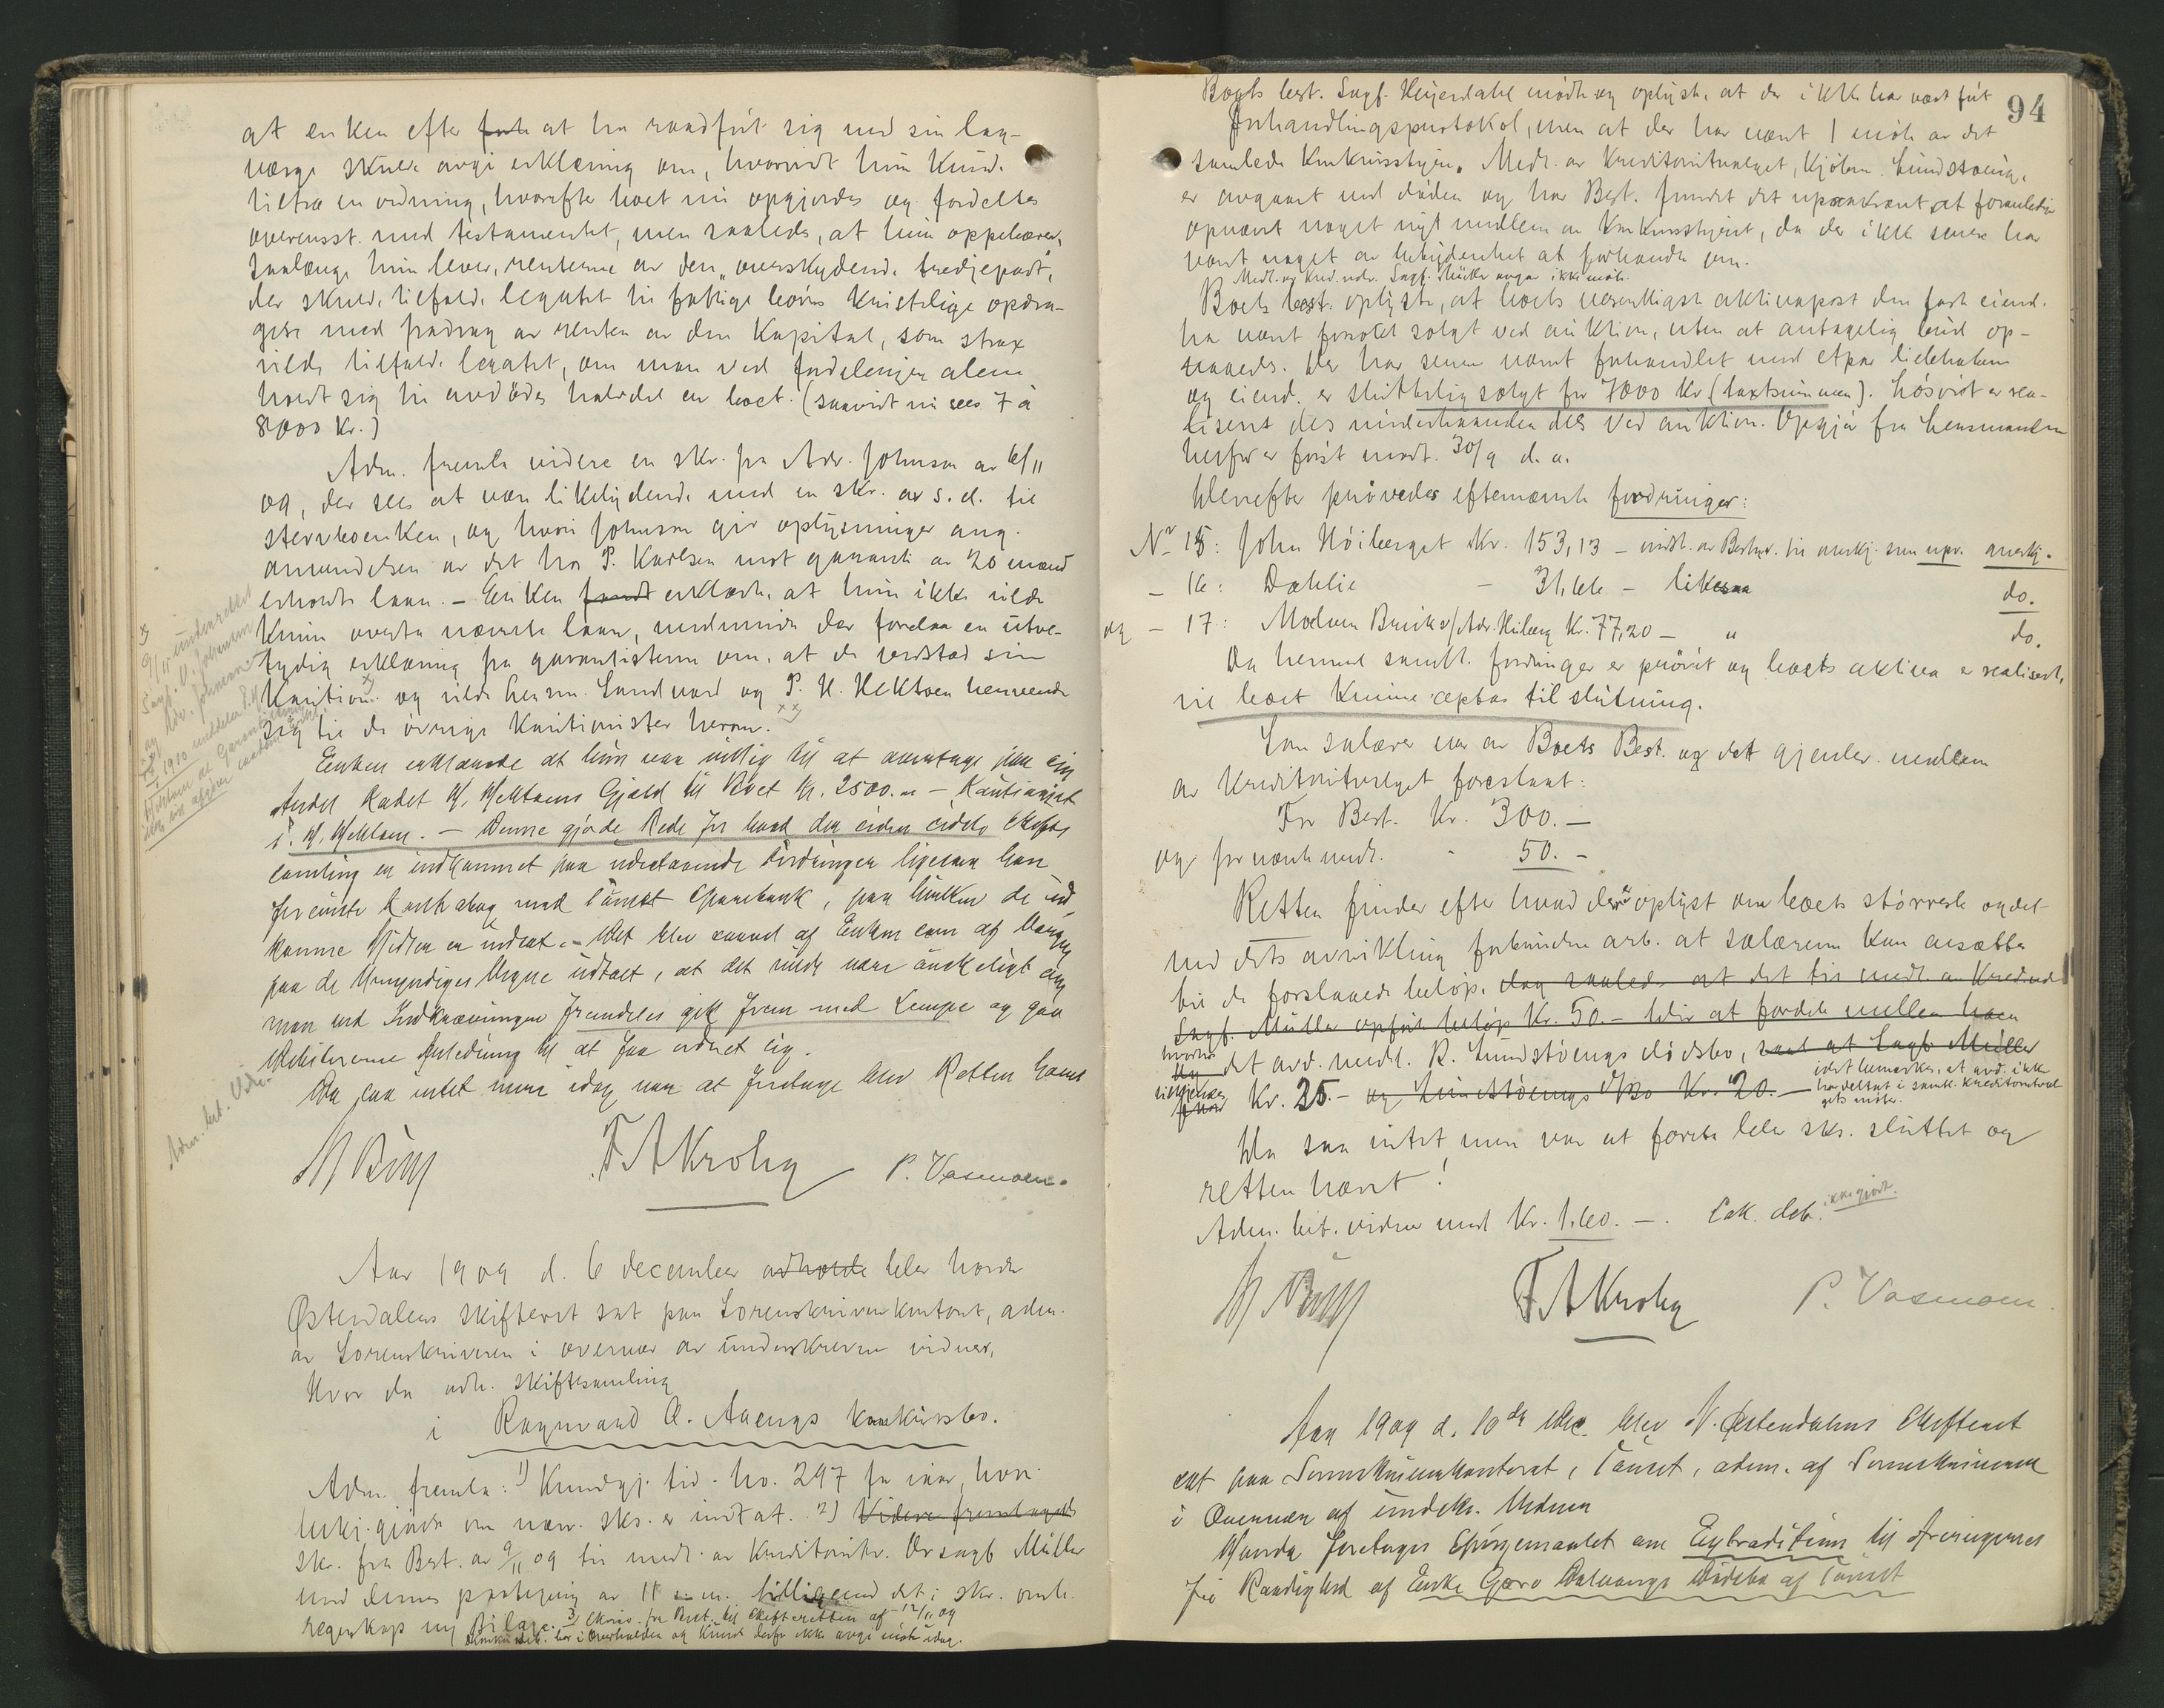 at enken efter at ha raadført sig med sin lag-
værge skulde avgi erklæring om, hvorvidt hun kunde
tiltræ en ordning, hvorefter boet nu opgjordes og fordeltes
overensst. med testamentet, men saaledes, at hun oppebærer,
saalænge hun lever, renterne av den "overskydende tredjepart",
der skulde tilfalde legatet til fattige børns kristelige opdra-
gelse med fradrag av renten av den kapital, som strax
vilde tilfalde legatet, om man ved fordelingen alene
holdt sig til avdødes halvdel av boet. (saavidt nu sees 7 à
8000 kr.)
Adm. fremla videre en skr. fra Adv. Johnson av 6/11
09, der sees at være likelydende med en skr. av s. d. til
stervboenken, og hvori Johnson gir oplysninger ang.
anvendelsen av det hos P. Karlsen mot garanti av 20 mand
erholdte laan. – Enken erklærte, at hun ikke vilde
kunne overta nævnte laan, medmindre der forelaa en utve-
tydig erklæring fra garantisterne om, at de vedstod sin
kaution x) og vilde Lensm. Sundvord og P. H. Hektoen henvende
sig til de øvrige kautionister herom. xx)
Enken erklærede at hun var villig til at overtage paa sin
Andel Kadet H. Hektoens Gjæld til Boet kr. 2500.00 – Kautionist
P. H. Hektoen. – Denne gjorde Rede for hvad der siden sidste Skifte-
samling er indkommet paa udestaaende Fordringer ligesom han
foreviste Kontrabog med Tønset Sparebank, paa hvilken de ind-
komne Midler er indsat. – Det blev saavel af Enken som af Værgen
paa de Umyndiges Vegne udtalt, at det vilde være ønskeligt om
man ved Indkrævningen fremdeles gik frem med Lempe og gav
Debitorerne Anledning til at faa ordnet sig.
Da saa intet mere idag var at foretage blev Retten hævet
Adm. bet. Vidn.
F A Krohg P. Vasmoen.
Aar 1909 d. 6 december blev Nordre
Østerdalens skifteret sat paa Sorenskriverkontoret, adm.
av Sorenskriveren i overvær av underskrevne vidner,
Hvor da avh. skiftesamling
i Ragnvald O. Aaengs konkursbo.
Adm. fremla: 1) Kundgj. tid. no. 297 for iaar, hvori
bekj.gjørelse om nærv. sks. er indtat. 2) Videre fremlagdes
skr. fra Best. av 9/11 09 til medl. av kreditorutv. Orsagf. Müller
med dennes paategning av 11 s. m. tilligemed det i skr. omh.
regnskap og Bilage. 3) Skriv. fra Best. til Skifteretten af 12/11 09
94
Boets best. Sagf. Heyerdahl mødte og oplyste, at der ikke har vært ført
forhandlingsprotokol, men at der har vært 1 møte av det
samlede konkursstyre. Medl. av kreditorutvalget, Kjøbm. Lundstøeng,
er avgaaet ved døden og har Best. fundet det upaakrævet, at foranledige
opnævnt noget nyt medlem av konkursstyret, da der ikke senere har
vært noget av betydenhet at forhandle om.
Medl. av Kred.utv. Sagf. Müller avga ikke møte.
Boets best. oplyste, at boets væsentligste aktivapost den faste eiend.
har vært forsøkt solgt ved auktion, uten at antagelig bud op-
naaedes. Der har senere vært forhandlet med etpar liebhabere
og eiend. er sluttelig solgt for 7000 kr (taxtsummen). Løsøret er rea-
lisert dels underhaanden dels ved auktion. Opgjør fra lensmanden
herfor er først modt. 30/9 d. a.
Derefter prøvedes efternævnte fordringer:
Nr 15: John Høiberget Kr. 153,13 – indst. av Bestyr. til anerkj. som upr. anerkj.
– 16: Dæhlie – 31,66 – likesaa do.
og – 17: Moelven Bruk v/Adv. Hiberg Kr. 77,20 – " do.
Da hermed samtl. fordringer er prøvet og boets aktiva er realisert,
vil boet kunne optas til slutning.
Som salærer var av Boets Best. og det gjenlev. medlem
av kreditorutvalget foreslaat:
For Best. Kr. 300.–
og for nævnte medl. - 50.–
Retten finder efter hvad der er oplyst om boets størrelse og det
med dets avvikling forbundne arb. at salærerne kan ansættes
til de foreslaaede beløp, dog saaledes at det til medl. av Kredutv.
Sagf. Müller opførte beløp Kr. 50.– blir at fordele mellem ham
og det avd. medl. R. Lundstøengs dødsbo, saal. at Sagf. Müller
tilkjendes Kr. 25.– og Lundstøengs Dbo Kr. 20.– idet bemerkes, at avd. ikke
har deltat i samtl. kreditorutval-
gets møter.
Da saa intet mere var at foreta blev sks. sluttet og
retten hævet!
Adm. bet. vidne med Kr. 1.60. –. Cak. deb. ikke gjort.
F A Krohg P. Vasmoen.
Aar 1909 d. 10de Dec. blev N. Østerdalens Skifteret
sat paa Sorenskriverkontoret, Tønset, adm. af Sorenskriveren
i Overvær af undskr. Vidner
Hvorda foretoges Spørgsmaalet om Extradition til Arvingernes
fri Raadighed af Enke Goro Dalvangs Dødsbo af Tønset